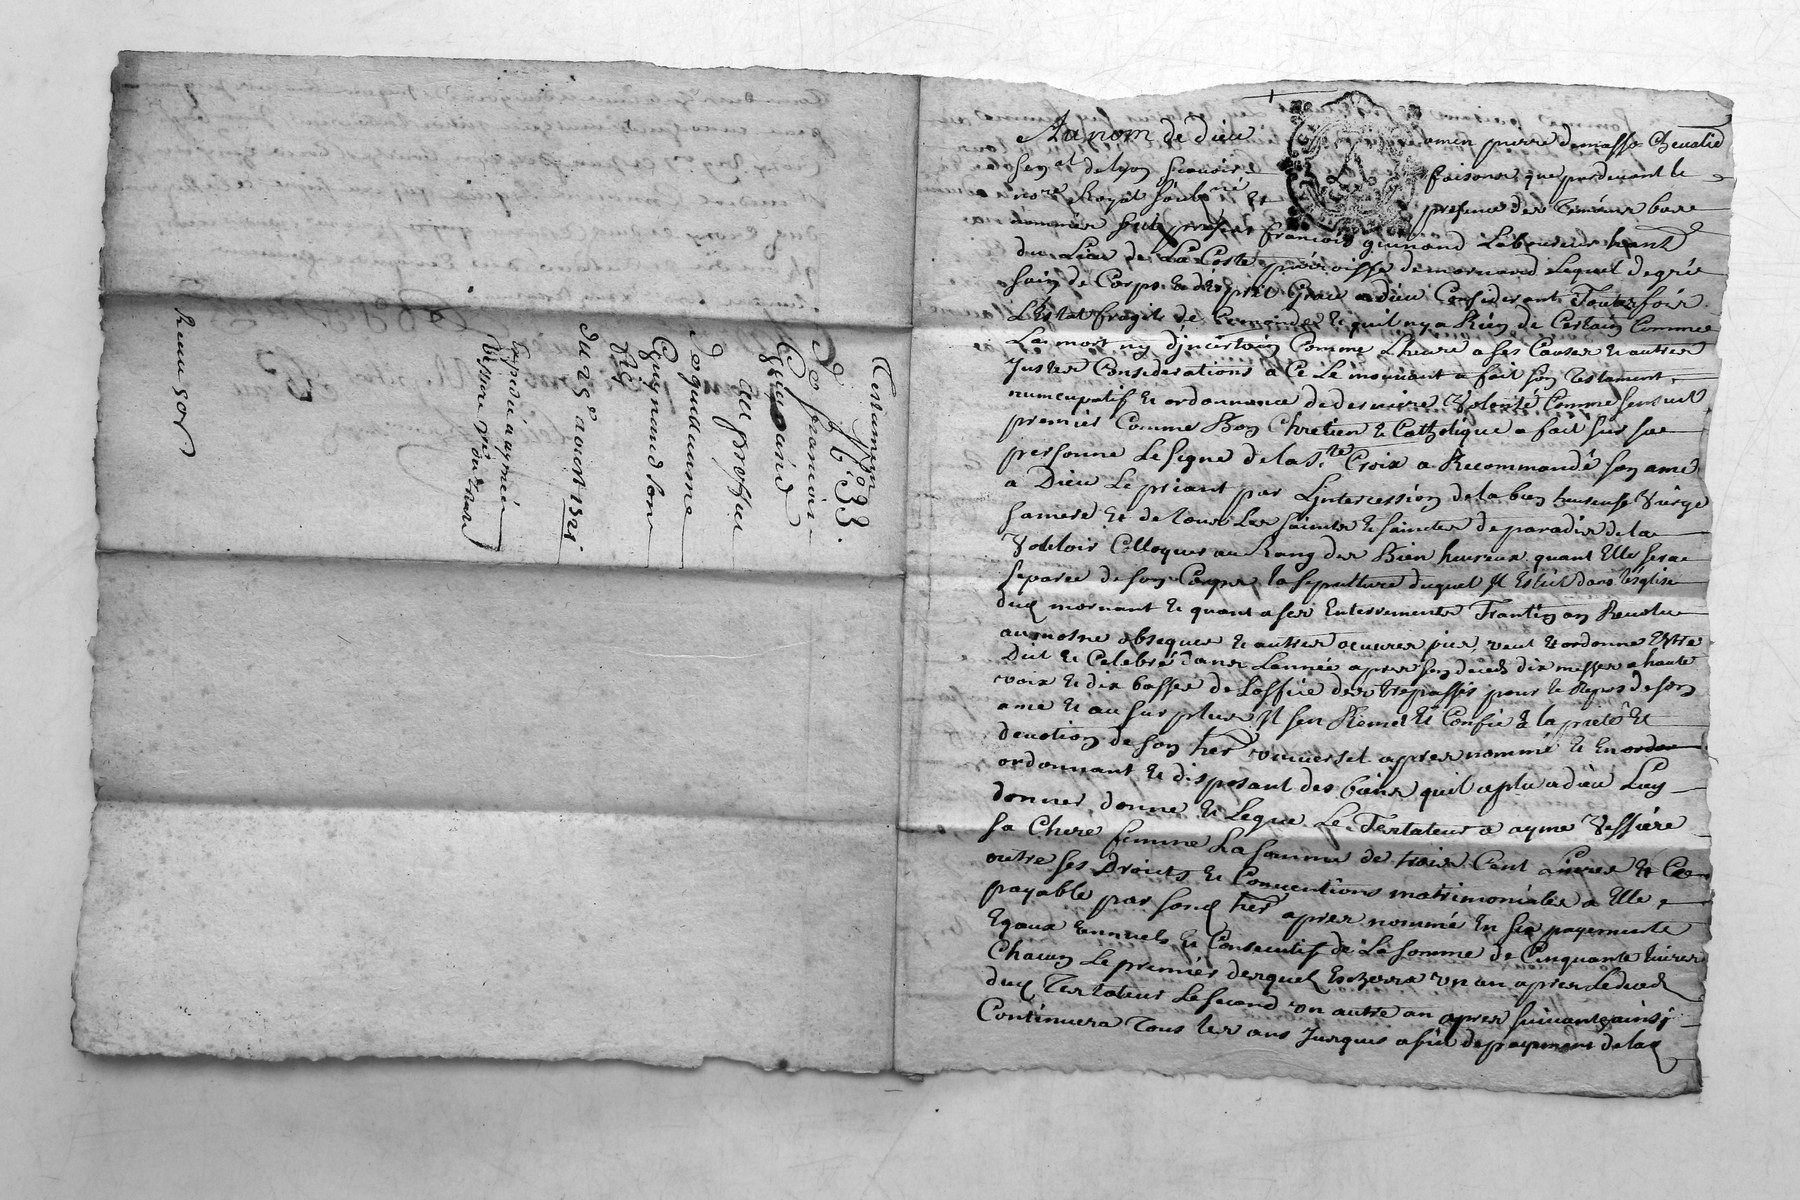 Testament
N° 33.
De françois
Guignand
au proffit
de guillaume
Guignand son
fils
du 25e aoust 1721
Expedié a aymée
Vessiere
Reçu 50s
Au nom de dieu amen pierre demasso Chevalier
Sen.al de lyon scavoir faisons que pardevant le
no.re Royal soub.né et presence des temoins bas
nommés fut present françois guinand Laboureur habant
du Lieu de La Coste parroisse de mornand Lequel de gré
sain de Corps et desprit Grace a dieu Considerant Toutesfois
L'Estat fragile de ce monde et quil ny a Rien de Certain Comme
La mort ny djncertain Comme Lheure a ses Causes et autres
Justes Considerations a Ce Le mouvant a fait son Testament
nuncupatif et ordonnance de derniere Volonté Comme sensuit
premier Comme Bon Chretien et Catholique a fait sur sa
personne Le signe de la S.te Croix a Recommandé son ame
a Dieu Le priant par Ljntercession de la bien heureuse Vierge
sa mere et de tous Les saints et saintes de paradis de la
Voulloir Colloquer au Rang des Bien heureux quant Elle sera
separée de son Corps la sepulture duquel Jl Eslit dans l'église
dud mornant et quant a ses Enterrements Trantin an Revolu
aumosne obseques et autres oeuvres pies veut et ordonne Estre
Dit et Celebré dans Lannée apres son deces dix messes a haute
voix et dix basses de Loffice des trepassés pour le Repos de son
ame et au surplus Jl sen Remet et Confie a la pieté et
devotion de son her universel apres nommé et En ordon
ordonnant et disposant des biens quil a plu a dieu Luy
donner donne et Legue Le Testateur a ayme Vessiere
sa Chere femme La somme de trois Cent Livres et Ce
outre ses Droits et Conventions matrimoniales a Elle
payable par sond her apres nommé En six payements
Egaux annuels et Consecutifs de La somme de Cinquante livres
Chacun Le premier desquel Echerra un an apres Le deces
dud Testateur Le second un autre an apres suivant et ainsi
Continuera Tous les ans Jusques a fin de payement de lad